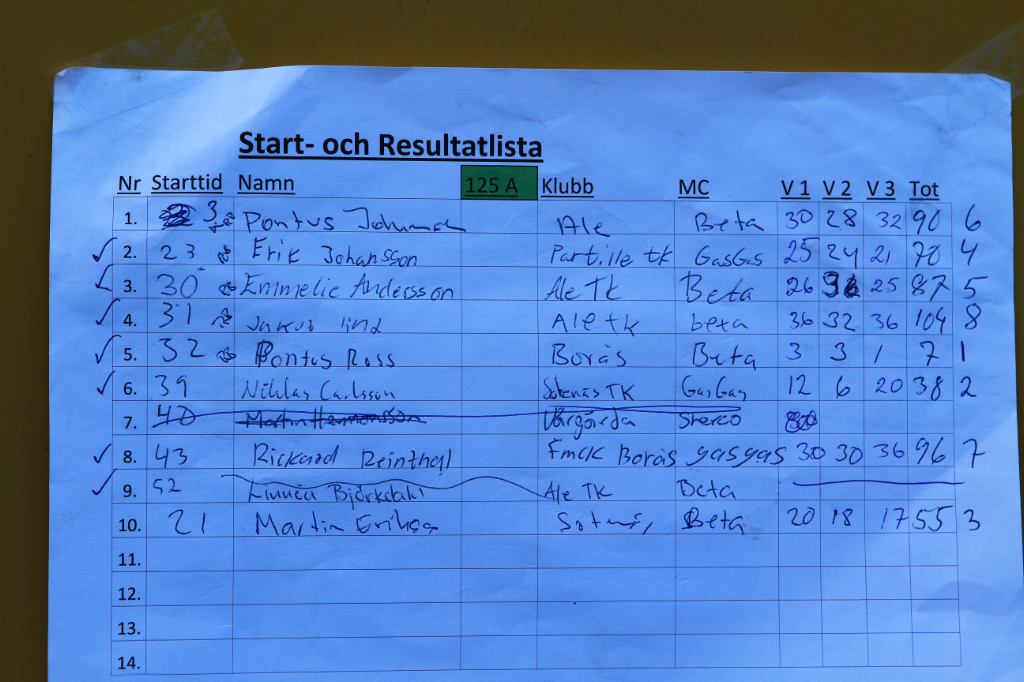 Start- och Resultatlista
Nr Starttid Namn 125 A Klubb MC V 1 V 2 V 3 Tot
1. 3 Pontus Ale Beta 30 28 32 90 6
2. 23 Erik Johansson Partille tk GasGas 25 24 21 70 4
3. 30 Emmelie Andersson Ale TK Beta 26 36 25 87 5
4. 31 Jakob lind Ale tk beta 36 32 36 104 8
5. 32 Pontus Ross Borås Beta 3 3 1 7 1
6. 39 Niklas Carlsson Sotenäs TK GasGas 12 6 20 38 2
7. 40 Martin Hermonsson Vårgårda Sherco
8. 43 Rickard Reinthall Fmck Borås gasgas 30 30 36 96 7
9. 52 Linnéa Björkdahl Ale TK Beta
10. 21 Martin Beta 20 18 17 55 3
11.
12.
13.
14.